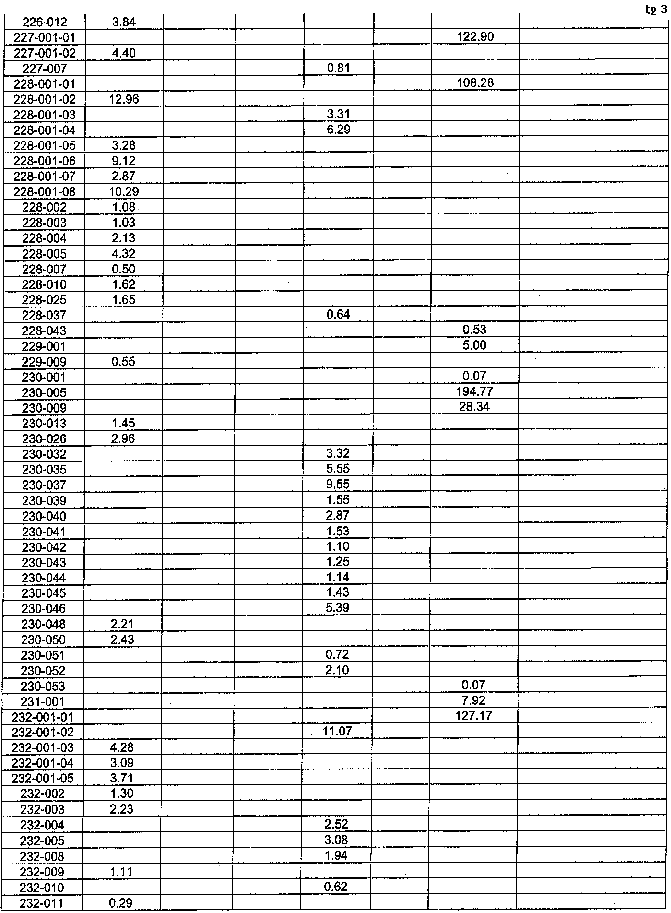 tg 3
226-012 3.84
227-001-01 122.90
227-001-02 4.40
227-007 0.81
228-001-01 108.28
228-001-02 12.96
228-001-03 3.31
228-001-04 6.29
228-001-05 3.28
228-001-06 9.12
228-001-07 2.87
228-001-08 10.29
228-002 1.08
228-003 1.03
228-004 2.13
228-005 4.32
228-007 0.50
228-010 1.62
228-025 1.65
228-037 0.64
228-043 0.53
229-001 5.00
229-009 0.55
230-001 0.07
230-005 194.77
230-009 28.34
230-013 1.45
230-026 2.96
230-032 3.32
230-035 5.55
230-037 9.55
230-039 1.55
230-040 2.87
230-041 1.53
230-042 1.10
230-043 1.25
230-044 1.14
230-045 1.43
230-046 5.39
230-048 2.21
230-050 2.43
230-051 0.72
230-052 2.10
230-053 0.07
231-001 7.92
232-001-01 127.17
232-001-02 11.07
232-001-03 4.28
232-001-04 3.09
232-001-05 3.71
232-002 1.30
232-003 2.23
232-004 2.52
232-005 3.08
232-008 1.94
232-009 1.11
232-010 0.62
232-011 0.29